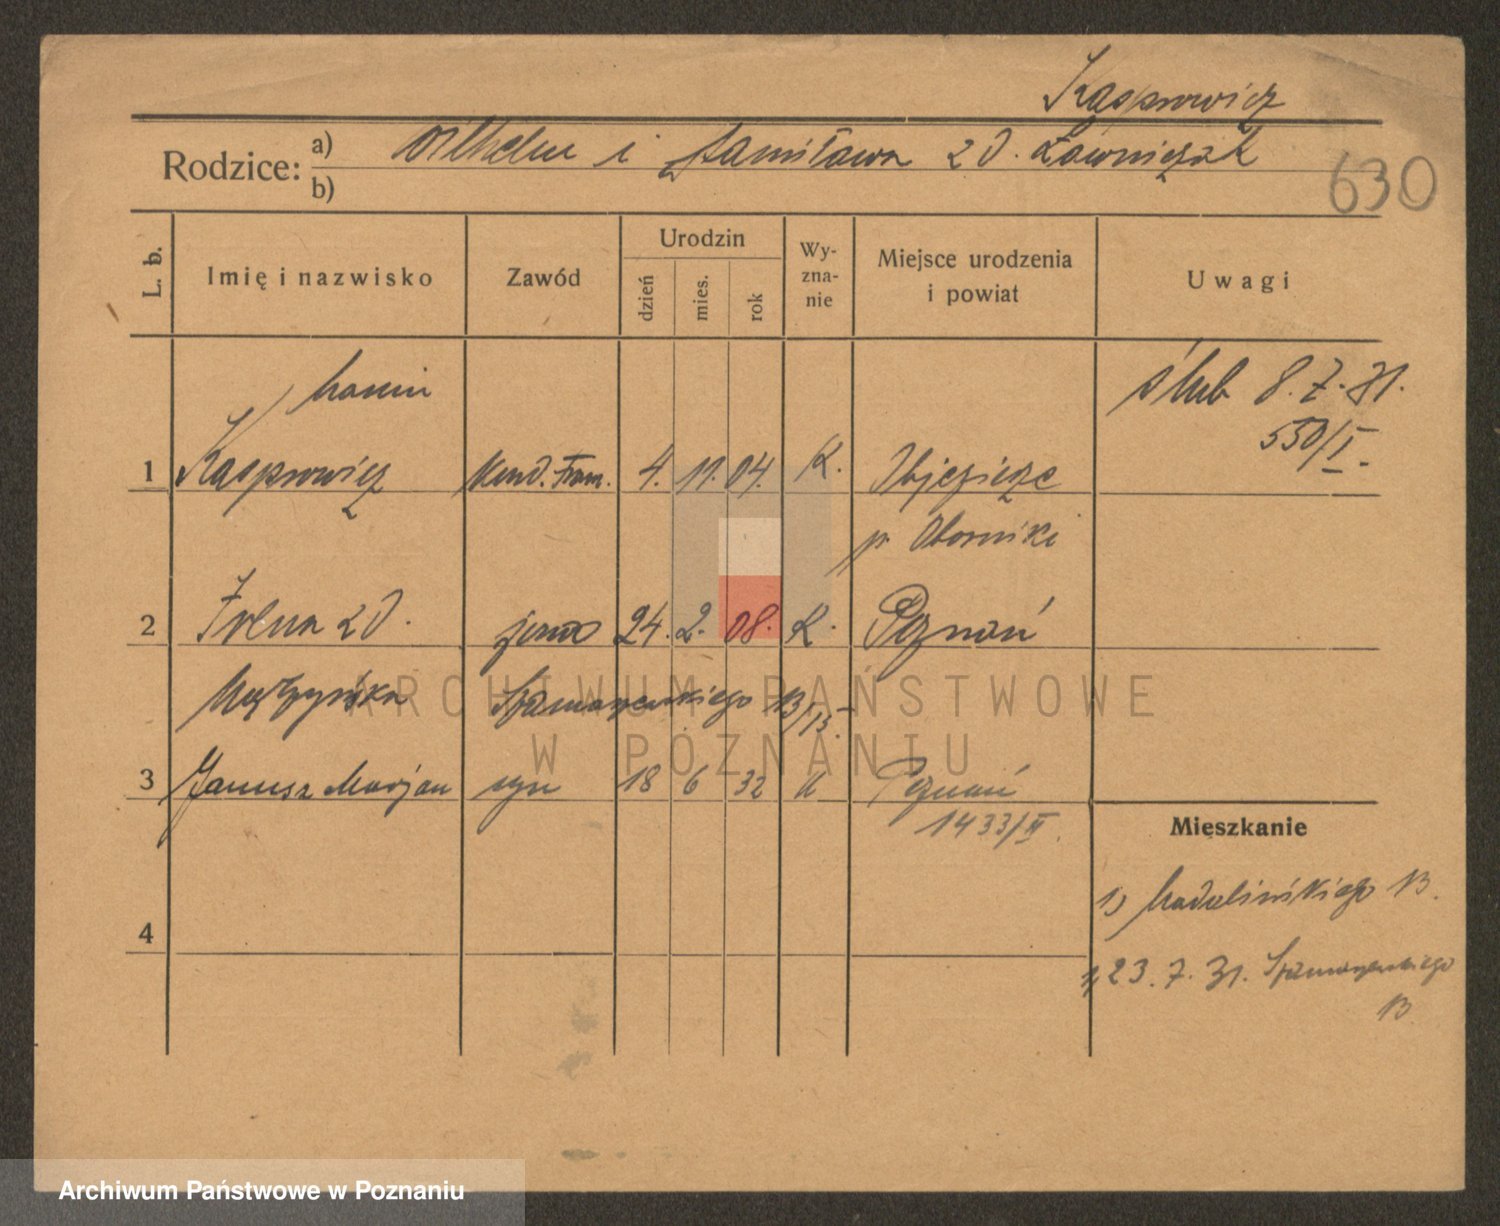 Kasprowicz
Rodzice: a) Wilhelm i Stanisława z d. Ławniczak
b)
630
L. b. Imię i nazwisko Zawód Urodzin dzień mies. rok Wy-zna-nie Miejsce urodzenia i powiat Uwagi
Marcin ślub 8.7.31.
550/I.
1 Kasprowicz Kond. Tram. 4. 11. 04. K. Objezierze
p. Oborniki
2 Irena z d. żona 24. 2. 08. K. Poznań
Szamarzewskiego 13/15
3 Janusz Marjan syn 18 6 32 K Poznań
1433/II
Mieszkanie
1) Madalińskiego 13.
4
23.7.31. Szamarzewskiego
13
ARCHIWUM PAŃSTWOWE
W POZNANIU
Archiwum Państwowe w Poznaniu